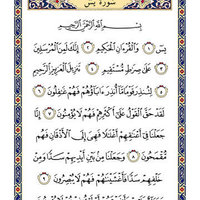 سورة يس
بسم الله الرحمن الرحيم
يس ١ والقرءان الحكيم ٢ إنك لمن المرسلين
٣ على صراط مستقيم ٤ تنزيل العزيز الرحيم
٥ لتنذر قوما ما أنذر ءاباؤهم فهم غافلون ٦
لقد حق القول على أكثرهم فهم لا يؤمنون ٧ إنا
جعلنا في أعناقهم أغلالا فهى إلى الأذقان فهم
مقمحون ٨ وجعلنا من بين أيديهم سدا ومن
خلفهم سدا فأغشيناهم فهم لا يبصرون ٩